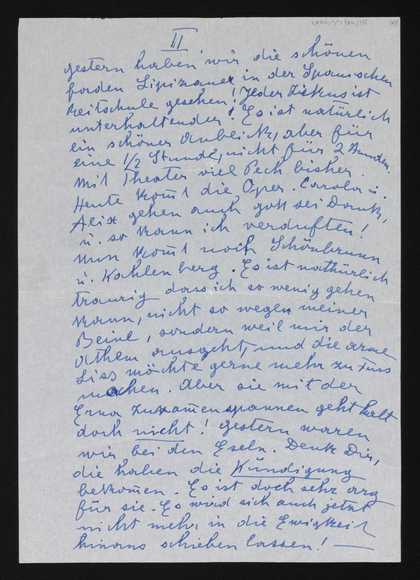 II
gestern haben wir die schönen
Lipizaner in der Spanischen
Reitschule gesehen! Jeder Zirkus ist
unterhaltender! Es ist natürlich
ein schöner Anblick, aber für
eine 1/2 Stunde, nicht für 2 Stunden.
Mit Theater viel Pech bisher.
Heute kom̅t die Oper. Carola u.
Alix gehen auch gott sei Dank,
u. so kann ich verduften!
Nun kom̅t noch Schönbrunn
u. Kahlenberg. Es ist nathürlich
traurig dass ich so wenig gehen
kann, nicht so wegen meiner
Beine, sondern weil mir der
Athem ausgeht, und die arme
Liss möchte gerne mehr zu Fuss
machen. Aber sie mit der
Erna zusam̅enspannen geht halt
doch nicht! Gestern waren
wir bei den Eseln. Denk Dir,
die haben die Kündigung
bekom̅en. Es ist doch sehr arg
für sie. Es wird sich auch jetzt
nicht mehr in die Ewigkeit
hinaus schieben lassen! —